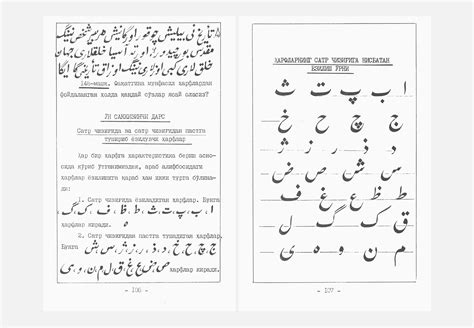 146-машқ. Фақатгина мунфасил ҳарфлардан
фойдаланган ҳолда қандай сўзлар ясай оласиз?
ЎН САККИЗИНЧИ ДАРС
Сатр чизиғида ва сатр чизиғидан пастга
тушириб ёзилувчи ҳарфлар
Ҳар бир ҳарфга характеристика бериш асно-
сида кўриб ўтганимиздек, араб алифбосидаги
ҳарфлар ёзилишига қараб ҳам икки турга бўлина-
ди:
1. Сатр чизиғида ёзиладиган ҳарфлар. Бунга
ا، ب، پ، ت، ث، ط، ظ، ف، ک، گ ҳарфлар киради.
2. Сатр чизиғидан пастга тушадиган ҳарфлар.
Бунга ج، چ، ح، خ، د، ذ، ر، ز، ژ، س، ش
ص، ض، ع، غ، ق، ل، م، ن، و، ه، ی ҳарфлар киради.
- 106 -
ҲАРФЛАРНИНГ САТР ЧИЗИҒИГА НИСБАТАН
ЁЗИЛИШ ЎРНИ
ا ب پ ت ث
ج چ ح خ
د ذ ر ز ژ
س ش ص ض
ط ظ ع غ ف
ق ک گ ل
م ن و ه ی
- 107 -